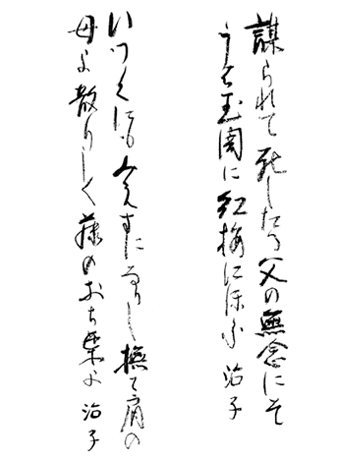 謀られて死したる父の無念にそ
うは玉闇に紅梅にほふ 治子
いつくにもみえすになりし撫て肩の
母よ散りしく藤のおち葉よ 治子